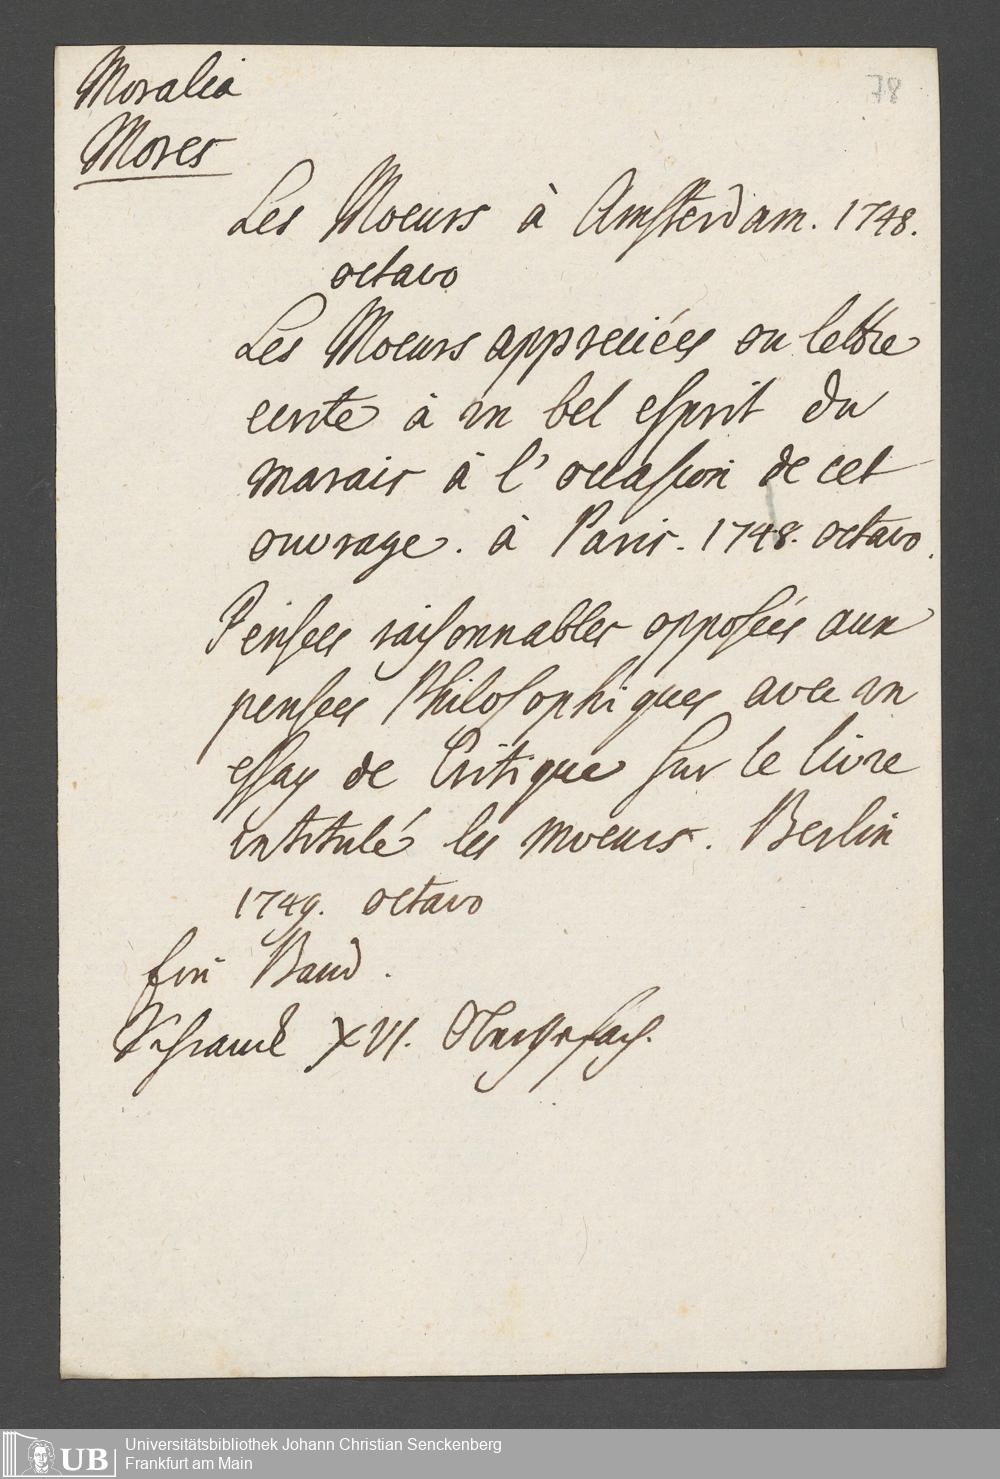 Moralia
78
Mores
Les Moeurs à Amsterdam. 1748.
octavo
Les Moeurs appreciées ou lettre
ecrite à un bel esprit du
marais à l'occasion de cet
ouvrage. à Paris. 1748. octavo.
Pensees raisonnables opposées aux
pensees Philosophiques avec un
essay de Critique sur le livre
intitulé les moeurs. Berlin
1749. octavo
Ein Band.
Schranck XVI.
UB
Universitätsbibliothek Johann Christian Senckenberg
Frankfurt am Main